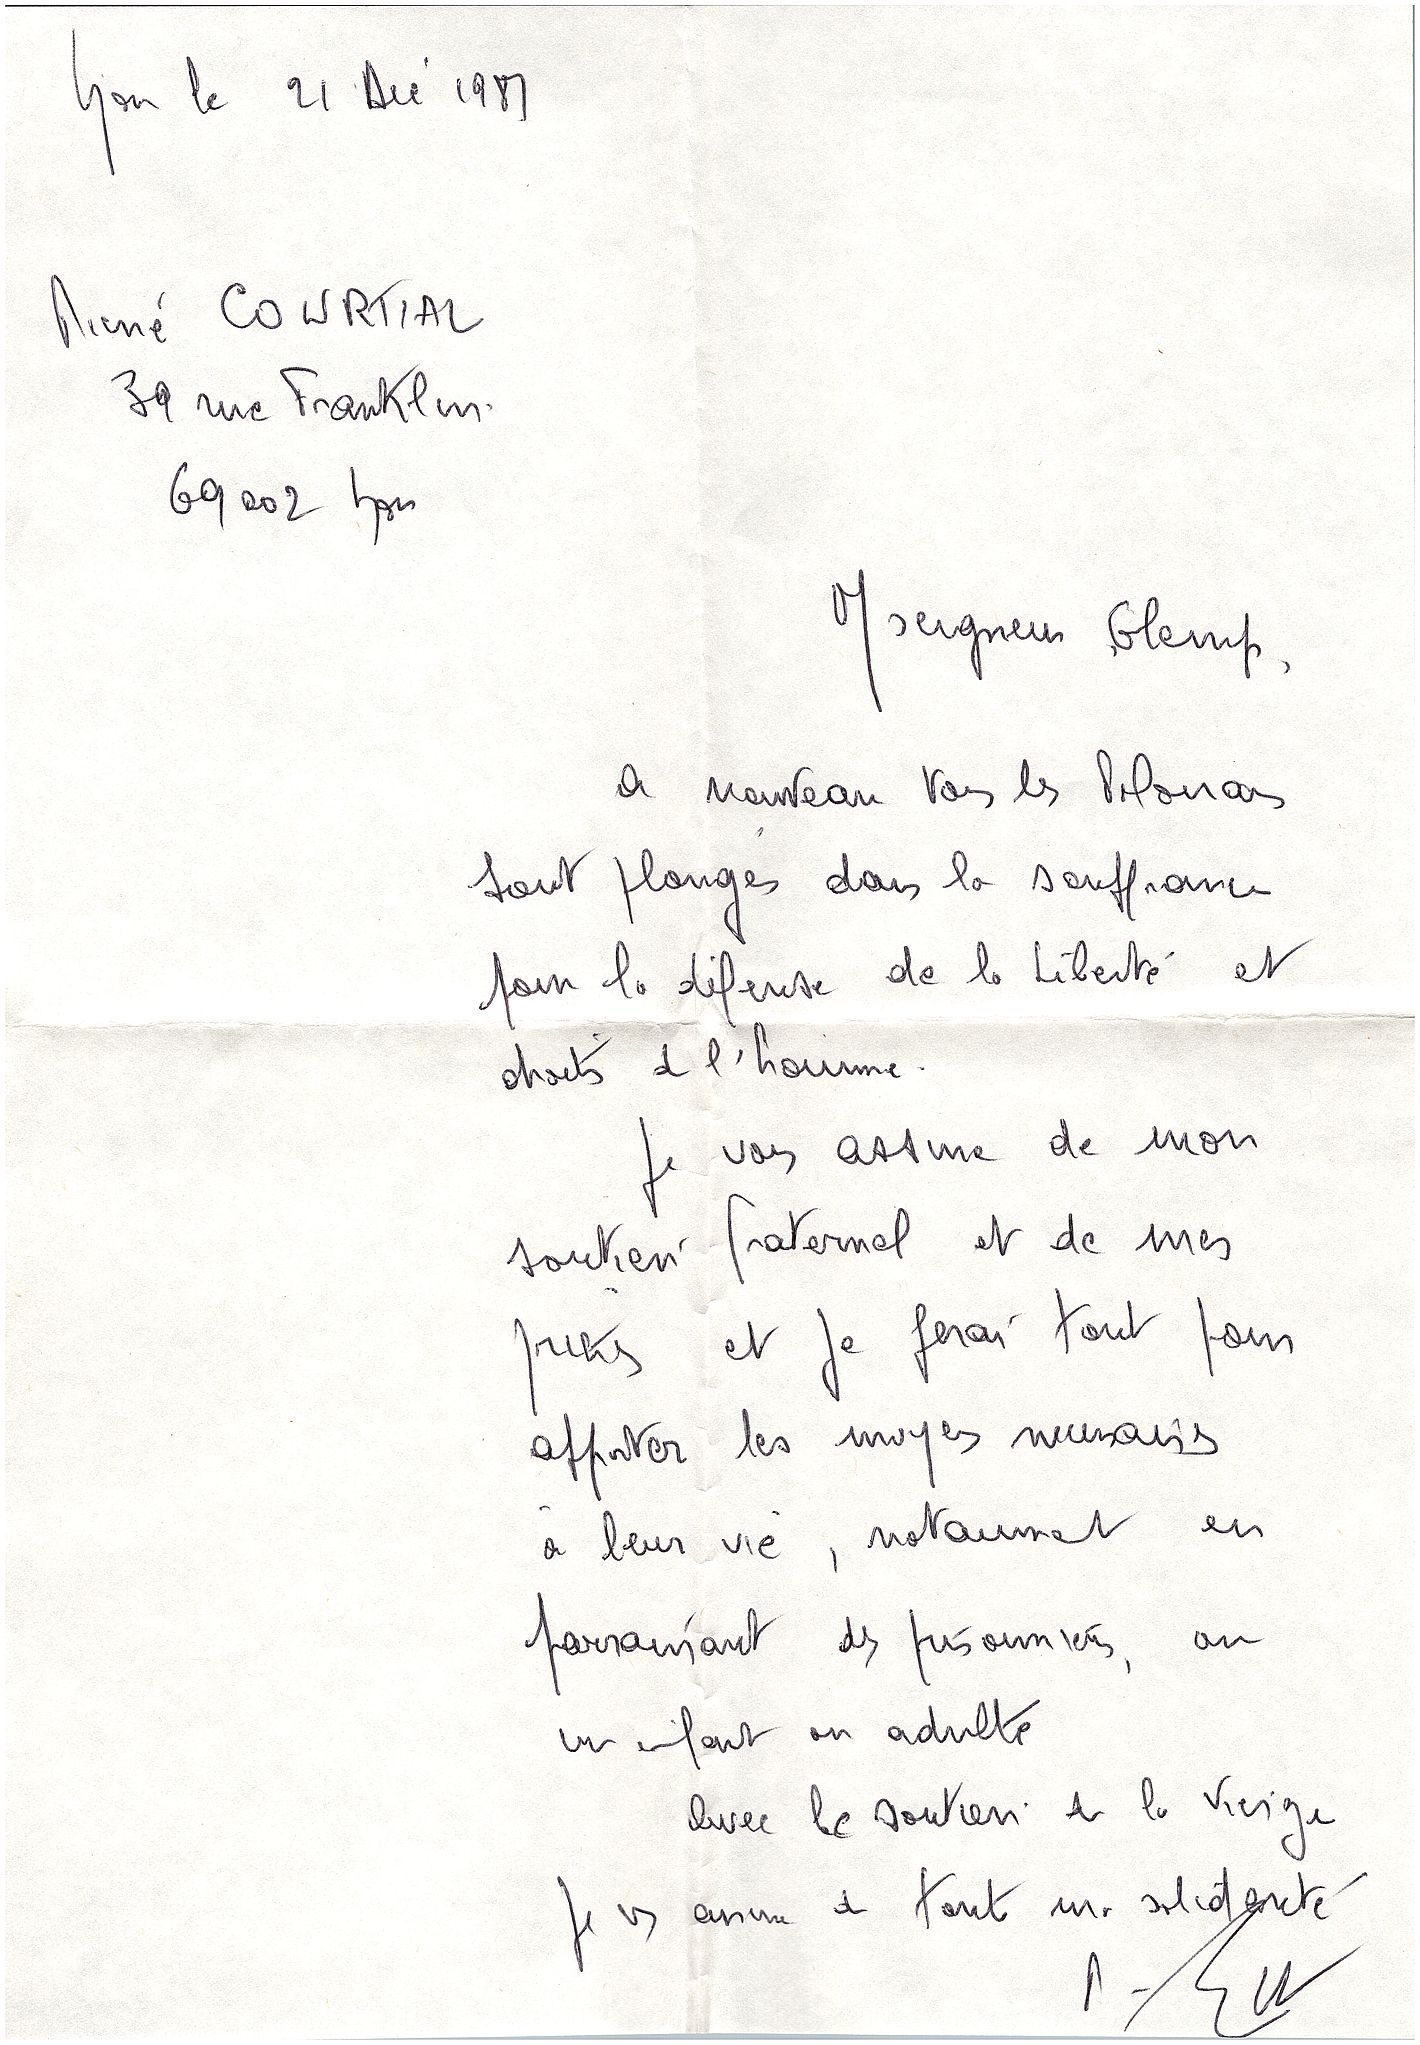 Lyon le 21 Déc 1981
Pierré COURTIAL
39 rue Franklin.
69002 Lyon
Mseigneur Glemp,
A nouveau tous les Polonais
sont plongés dans la souffrance
pour la défense de la Liberté et
droits de l'homme.
Je vous assure de mon
soutien fraternel et de mes
prières et je ferai tout pour
apporter les moyes necessaires
à leur vie, notamment en
parrainant des prisonniers, ou
un enfant ou adulte
Avec le soutien de la Vierge
Je vs assure de toute ma solidarité